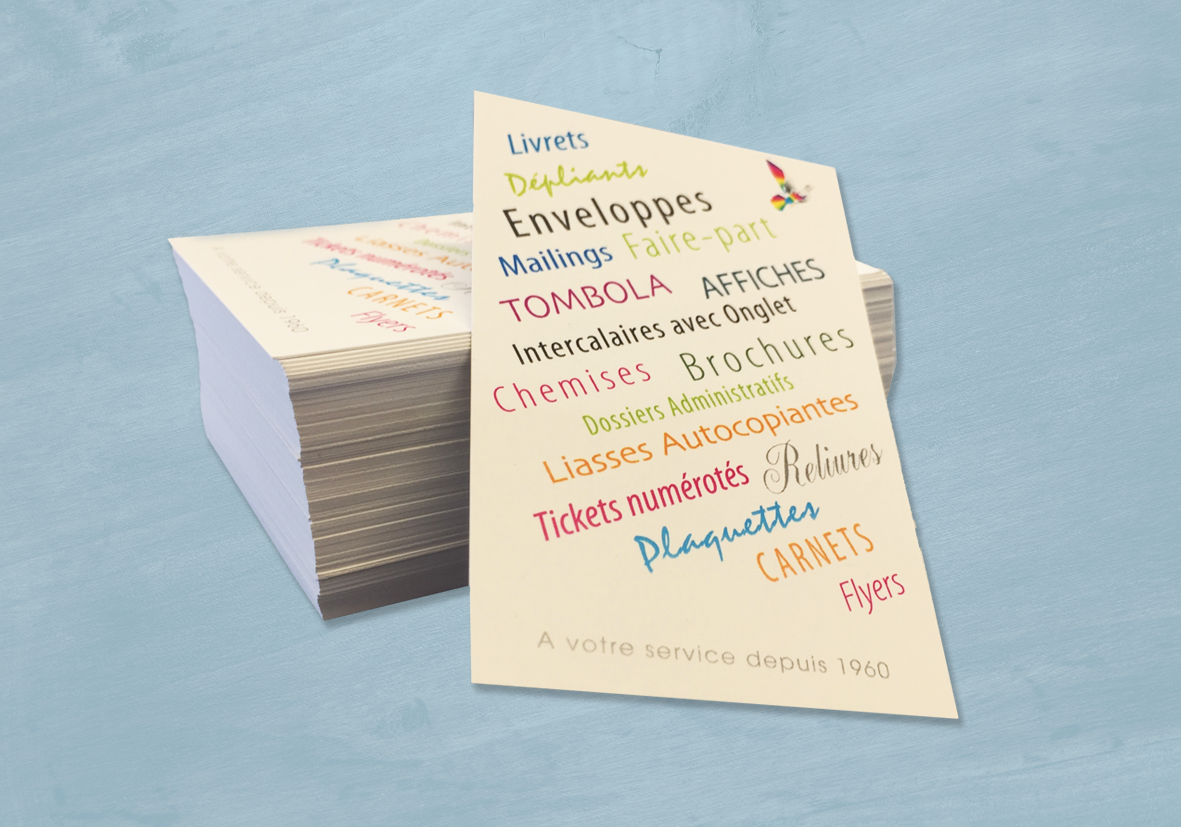 Livrets
Dépliants
Enveloppes
Mailings Faire-part
TOMBOLA AFFICHES
Intercalaires avec Onglet
Chemises Brochures
Dossiers Administratifs
Liasses Autocopiantes
Tickets numérotés Reliures
Plaquettes
CARNETS
Flyers
A votre service depuis 1960
Dossiers
Liasses Aut
Tickets numérotés
Plaquettes
CARNETS
Flyers
A votre service depuis 1960